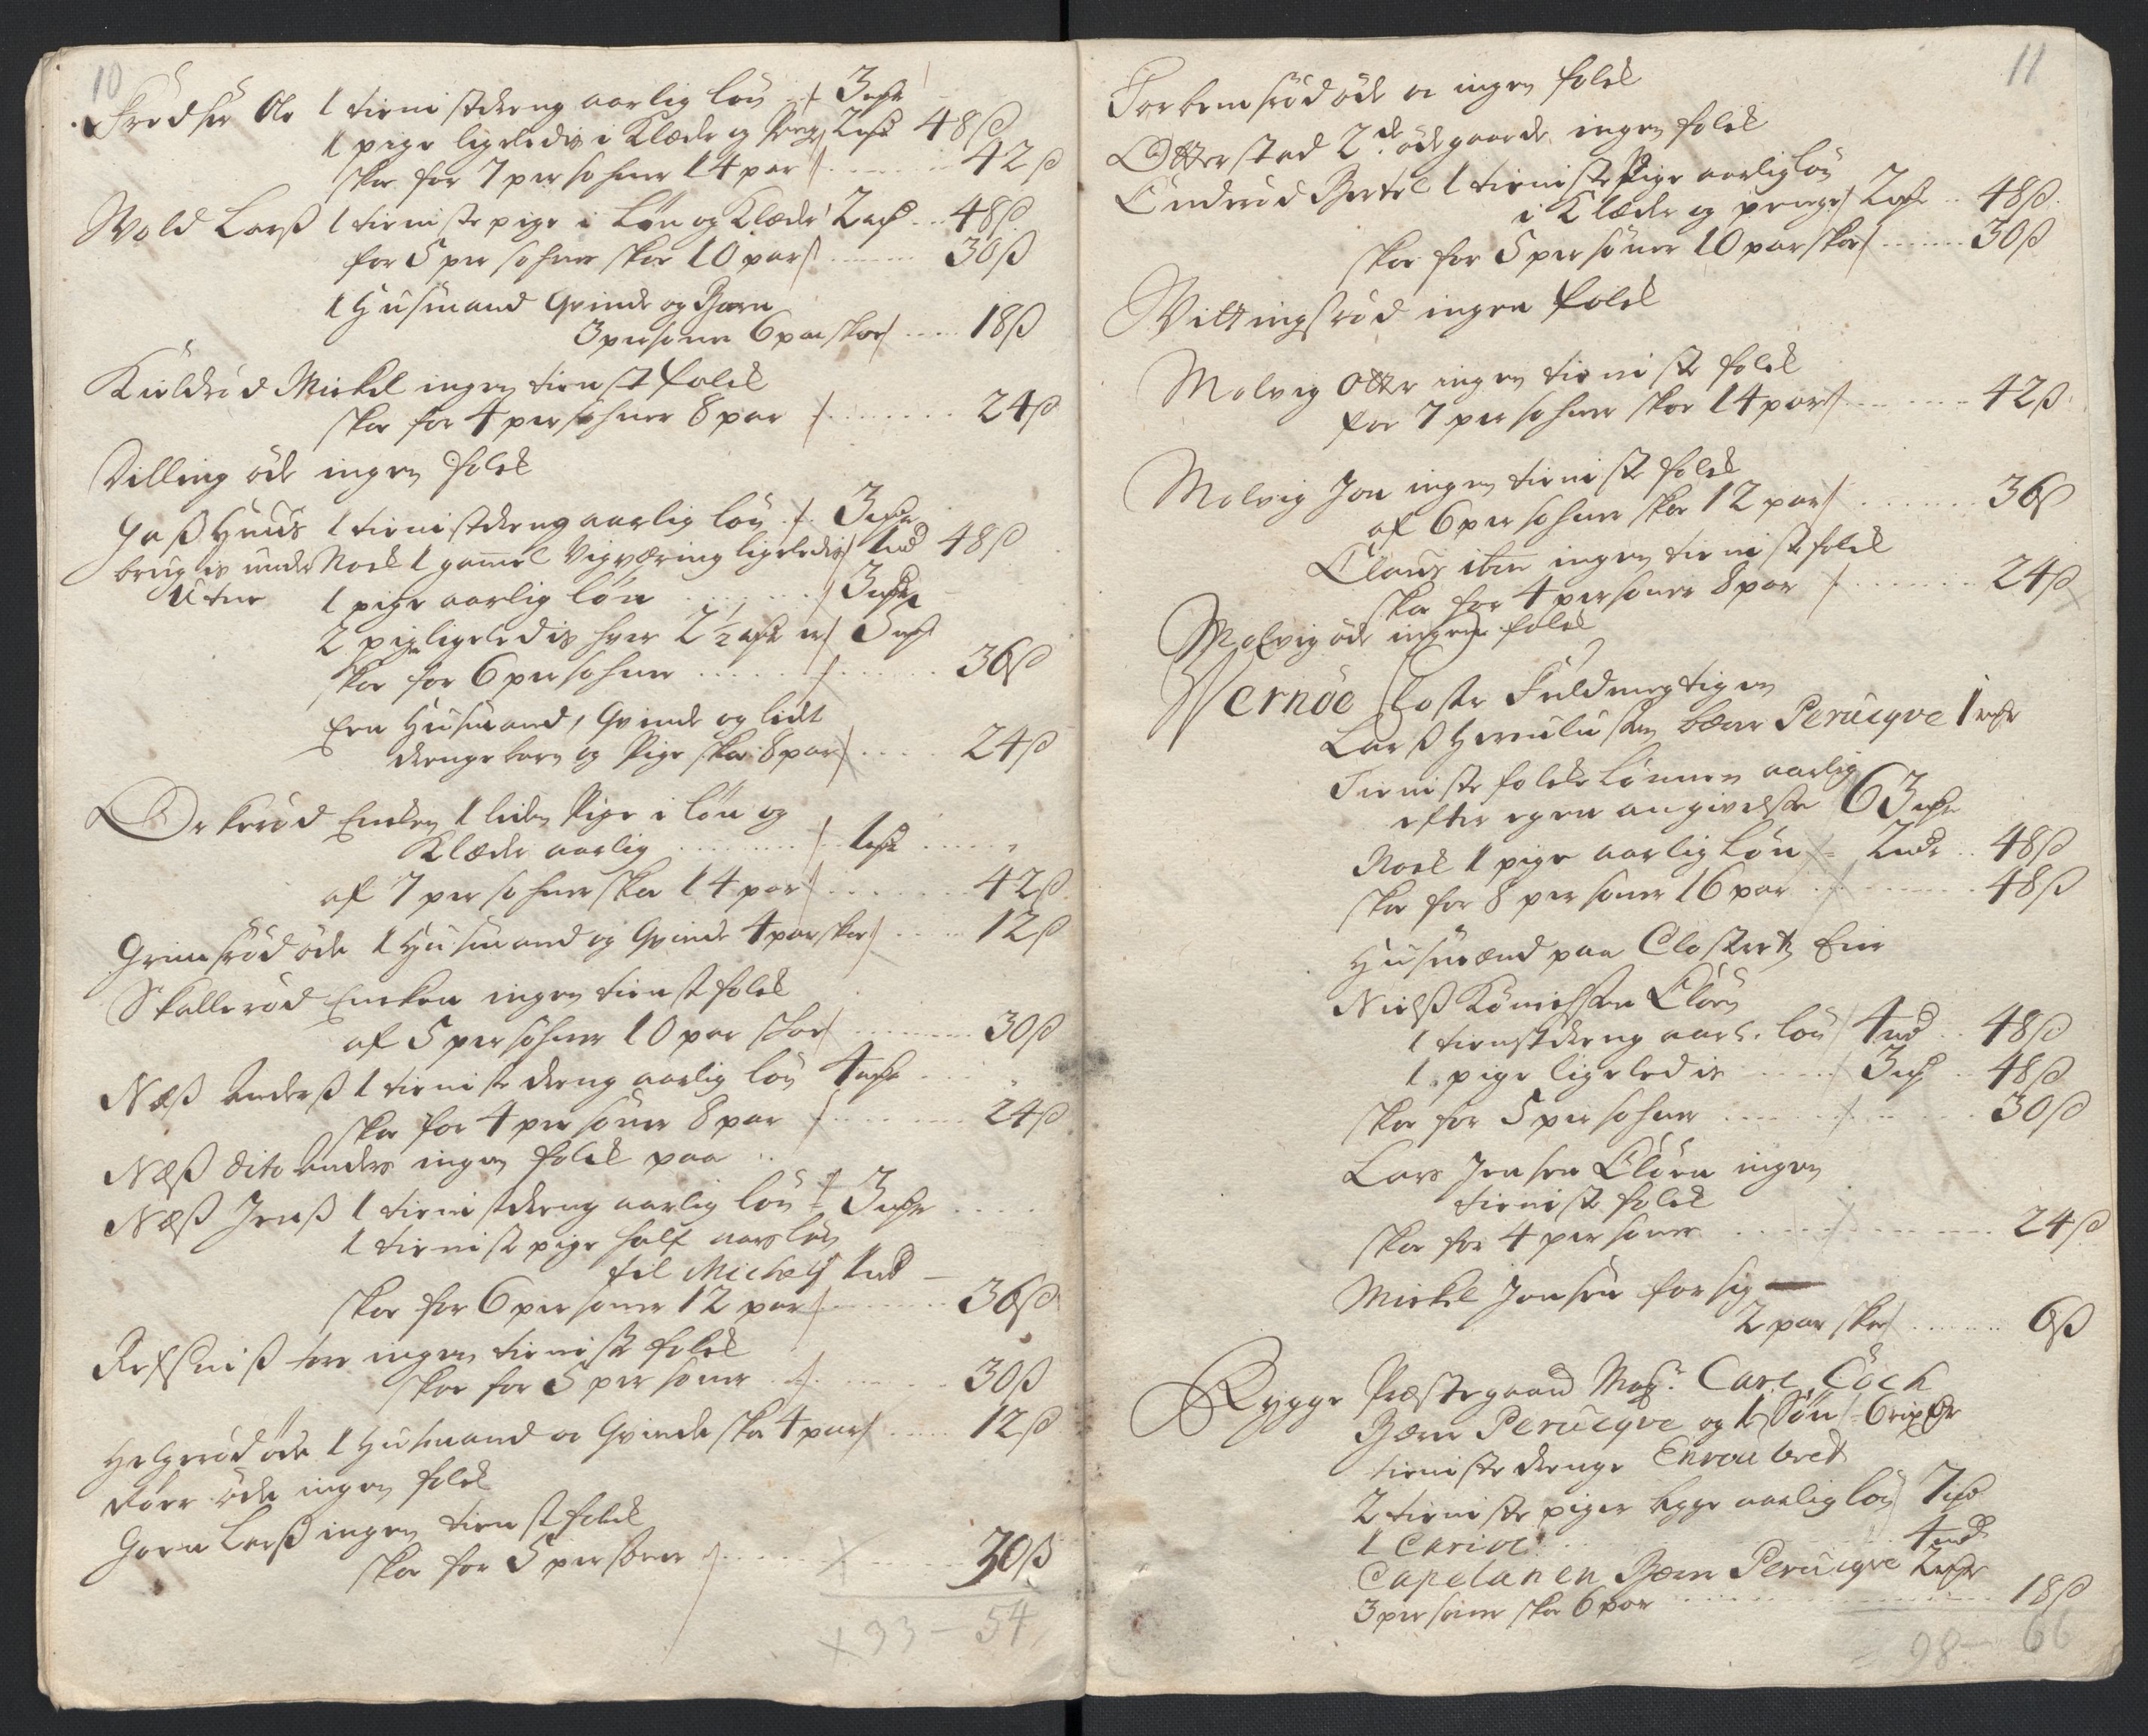 10
Fredsfier Ole 1 tienistdreng aarlig løn 3 rdr
1 pige ligeledis i Klæder og Peng 2 rdr 48 ß
skoe for 7 persohner 14 par 42 ß
Wold Larß 1 tieniste pige i Løn og Klæder 2 rdr 48 ß
for 5 persohner skoe 10 par 30 ß
1 Husmand Qvinde og Barn
3 persohner 6 par skoe 18 ß
Kieldrød Mickel ingen tienist folck
skoe for 4 persohner 8 par 24 ß
Dilling øde ingen folck
huus 1 tienistdreng aarlig løn 3 rdr
brugis under Noch 1 gamel ligeledis 1 rdr 48 ß
1 pige aarlig løn 3 rdr
2 piger ligeledis hver 2 1/2 rdr er 5 rdr
skoe for 6 persohner 36 ß
Een Husmand, Qvinde og lidt
drenge barn og Pige skoe 8 par 24 ß
Orkerød Encken 1 liden Pige i løn og
Klæder aarlig 1 rdr
af 7 persohner skoe 14 par 42 ß
Grimsrød øde 1 Husmand og Qvinde 4 par skoe 12 ß
Skallerød Encken ingen tienist folck
af 5 persohner 10 par skoe 30 ß
Næß Anderß 1 tieniste dreng aarlig løn 4 rdr
skoe for 4 persohner 8 par 24 ß
Næß dito Anders ingen folck paa
Næß Jenß 1 tienistdreng aarlig løn 3 rdr
1 tieniste pige half aars løn
til Michelj 1 rd
skoe for 6 persohner 12 par 36 ß
Refsniß tore ingen tieniste folck
skoe for 5 persohner 30 ß
Helgerød øde 1 Husmand oc Qvinde skoe 4 par 12 ß
Røer øde ingen folck
Gorn Larß ingen tienist folck
skoe for 5 persohner 30 ß
33 - 54
11
Torbernsrød øde oc ingen folck
Otterstad 2de ødegaarde ingen folck
Enderød Bertel 1 tieniste Pige aarlig løn
i Klæder og penge 2 rdr 48 ß
skoe for 5 persohner 10 par skoe 30 ß
Wittingsrød ingen folck
Molvig Otte ingen tieniste folck
for 7 persohner skoe 14 par 42 ß
Molvig Jon ingen tieniste folck
af 6 persohner skoe 12 par 36 ß
Claus iben ingen tieniste folck
skoe for 4 persohner 8 par 24 ß
Molvig øde ingen folck
Wernøe Closter Fuldmegtigen
Larß bær Perucqve 1 rdr
Tieniste folckes Lønnen aarlig
efter egen angivelse 63 rdr
Noch 1 pige aarlig Løn 2 rdr 48 ß
skoe for 8 persohner 16 par 48 ß
Husmænd paa Closterets Eie
Nielß
1 tienistdreng aarl. løn 4 rd 48 ß
1 pige ligeledis 3 rdr 48 ß
skoe for 5 persohner 30 ß
Lars Jensen Eløen ingen
tieniste folck
skoe for 4 persohner 24 ß
Mickel Jonsen for sig
2 par skoe 6 ß
Rygge Præstegaard Mag. Carl Cöch
Bær Perucqve og 1 Søn 6 rixdr
tieniste drenge Enroulleret
2 tieniste piger begge aarlig løn 7 rdr
1 Cariol 4 rd
Capelanen Bær Perucqve 2 rdr
3 persohner skoe 6 par 18 ß
98 - 66